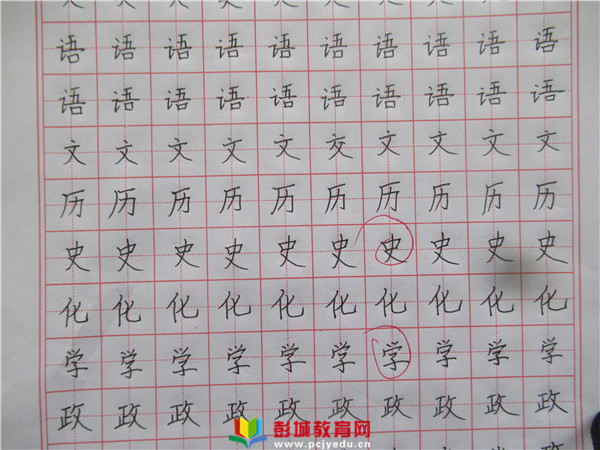 语语语语语语语语语语
语语语语语语语语语语
文文文文文交文文文文
历历历历历历历历历历
史史史史史史史史史史
化化化化化化化化化化
学学学学学学学学学学
政政政政政政政政政政
彭城教育网
www.pcjyedu.cn